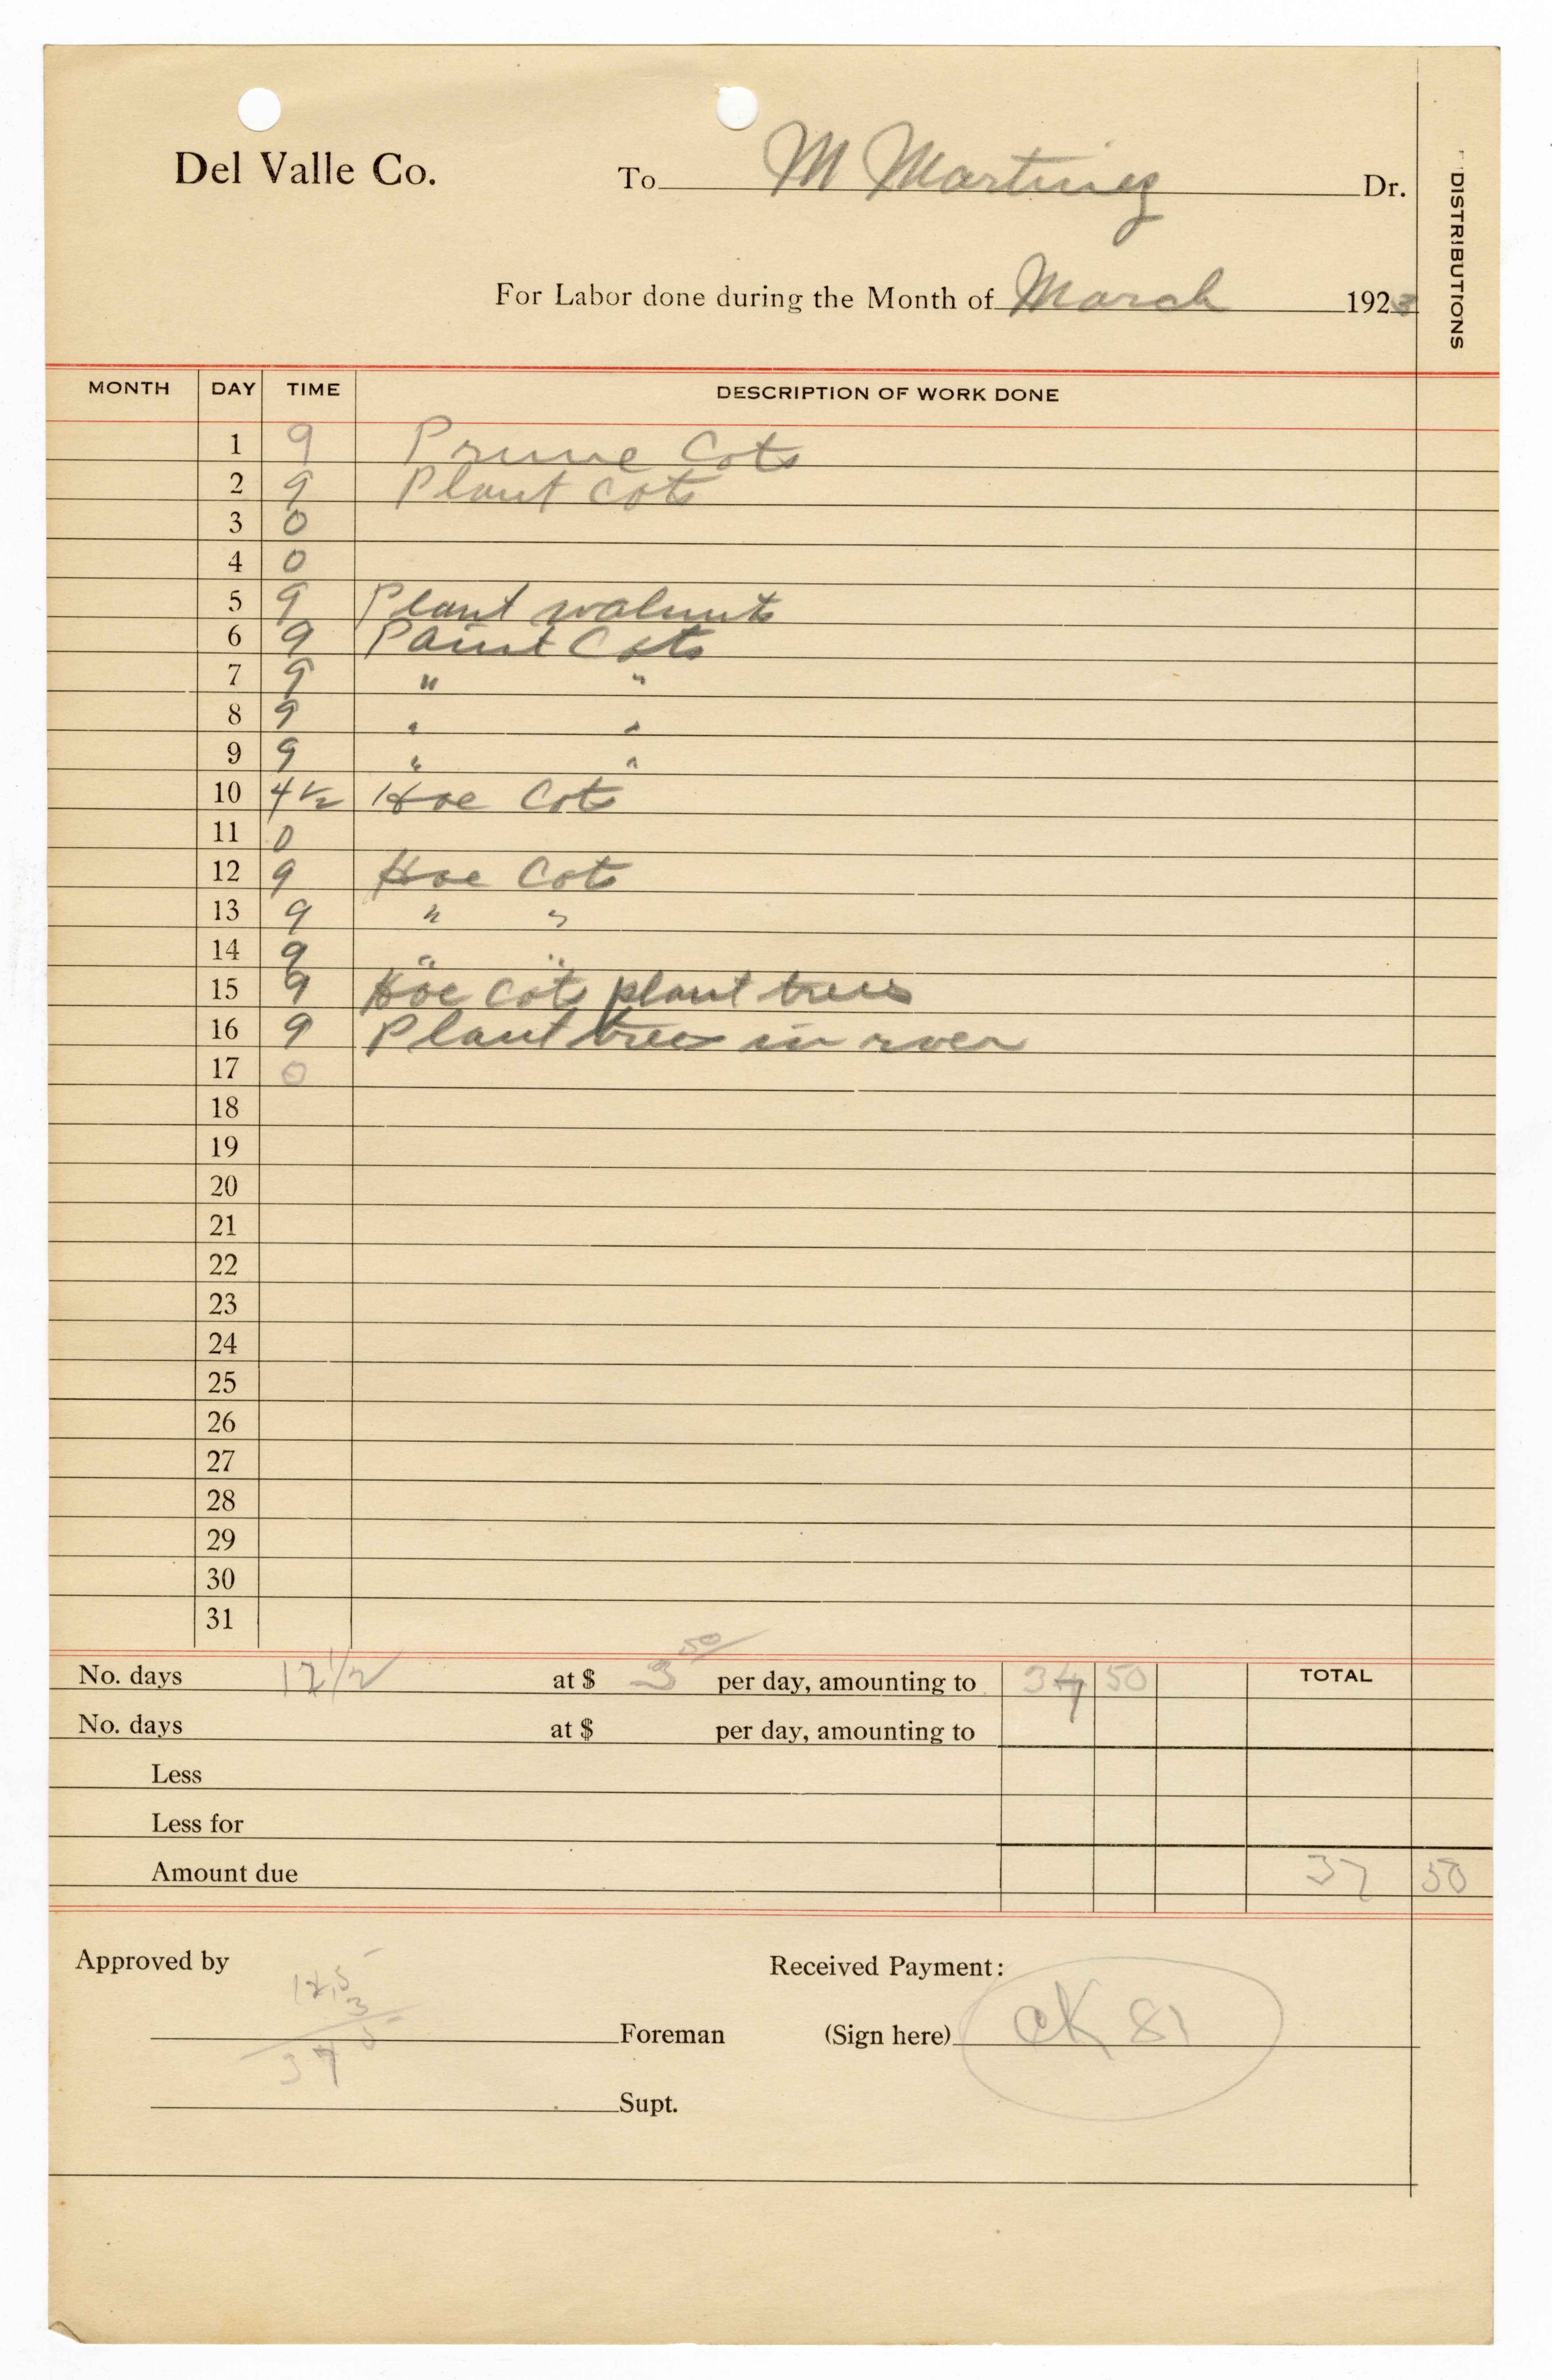 Del Valle Co.
To M Martinez Dr.
DISTRIBUTIONS
For Labor done during the Month of March 1923
MONTH DAY TIME DESCRIPTION OF WORK DONE
1 9 Prune Cots
2 9 Plant Cots
3 0
4 0
5 9 Plant walnuts
6 9 Paint Cots
7 9 " "
8 9 " "
9 9 " "
10 4 1/2 Hoe Cots
11 0
12 9 Hoe Cots
13 9 " "
14 9 " "
15 9 Hoe Cots plant trees
16 9 Plant trees in river
17 0
18
19
20
21
22
23
24
25
26
27
28
29
30
31
No. days 12 1/2 at $ 3 50/ per day, amounting to 37 50 TOTAL
No. days at $ per day, amounting to
Less
Less for
Amount due 37 50
Approved by Received Payment:
12.5
3
Foreman (Sign here) CK 81
37 5
Supt.